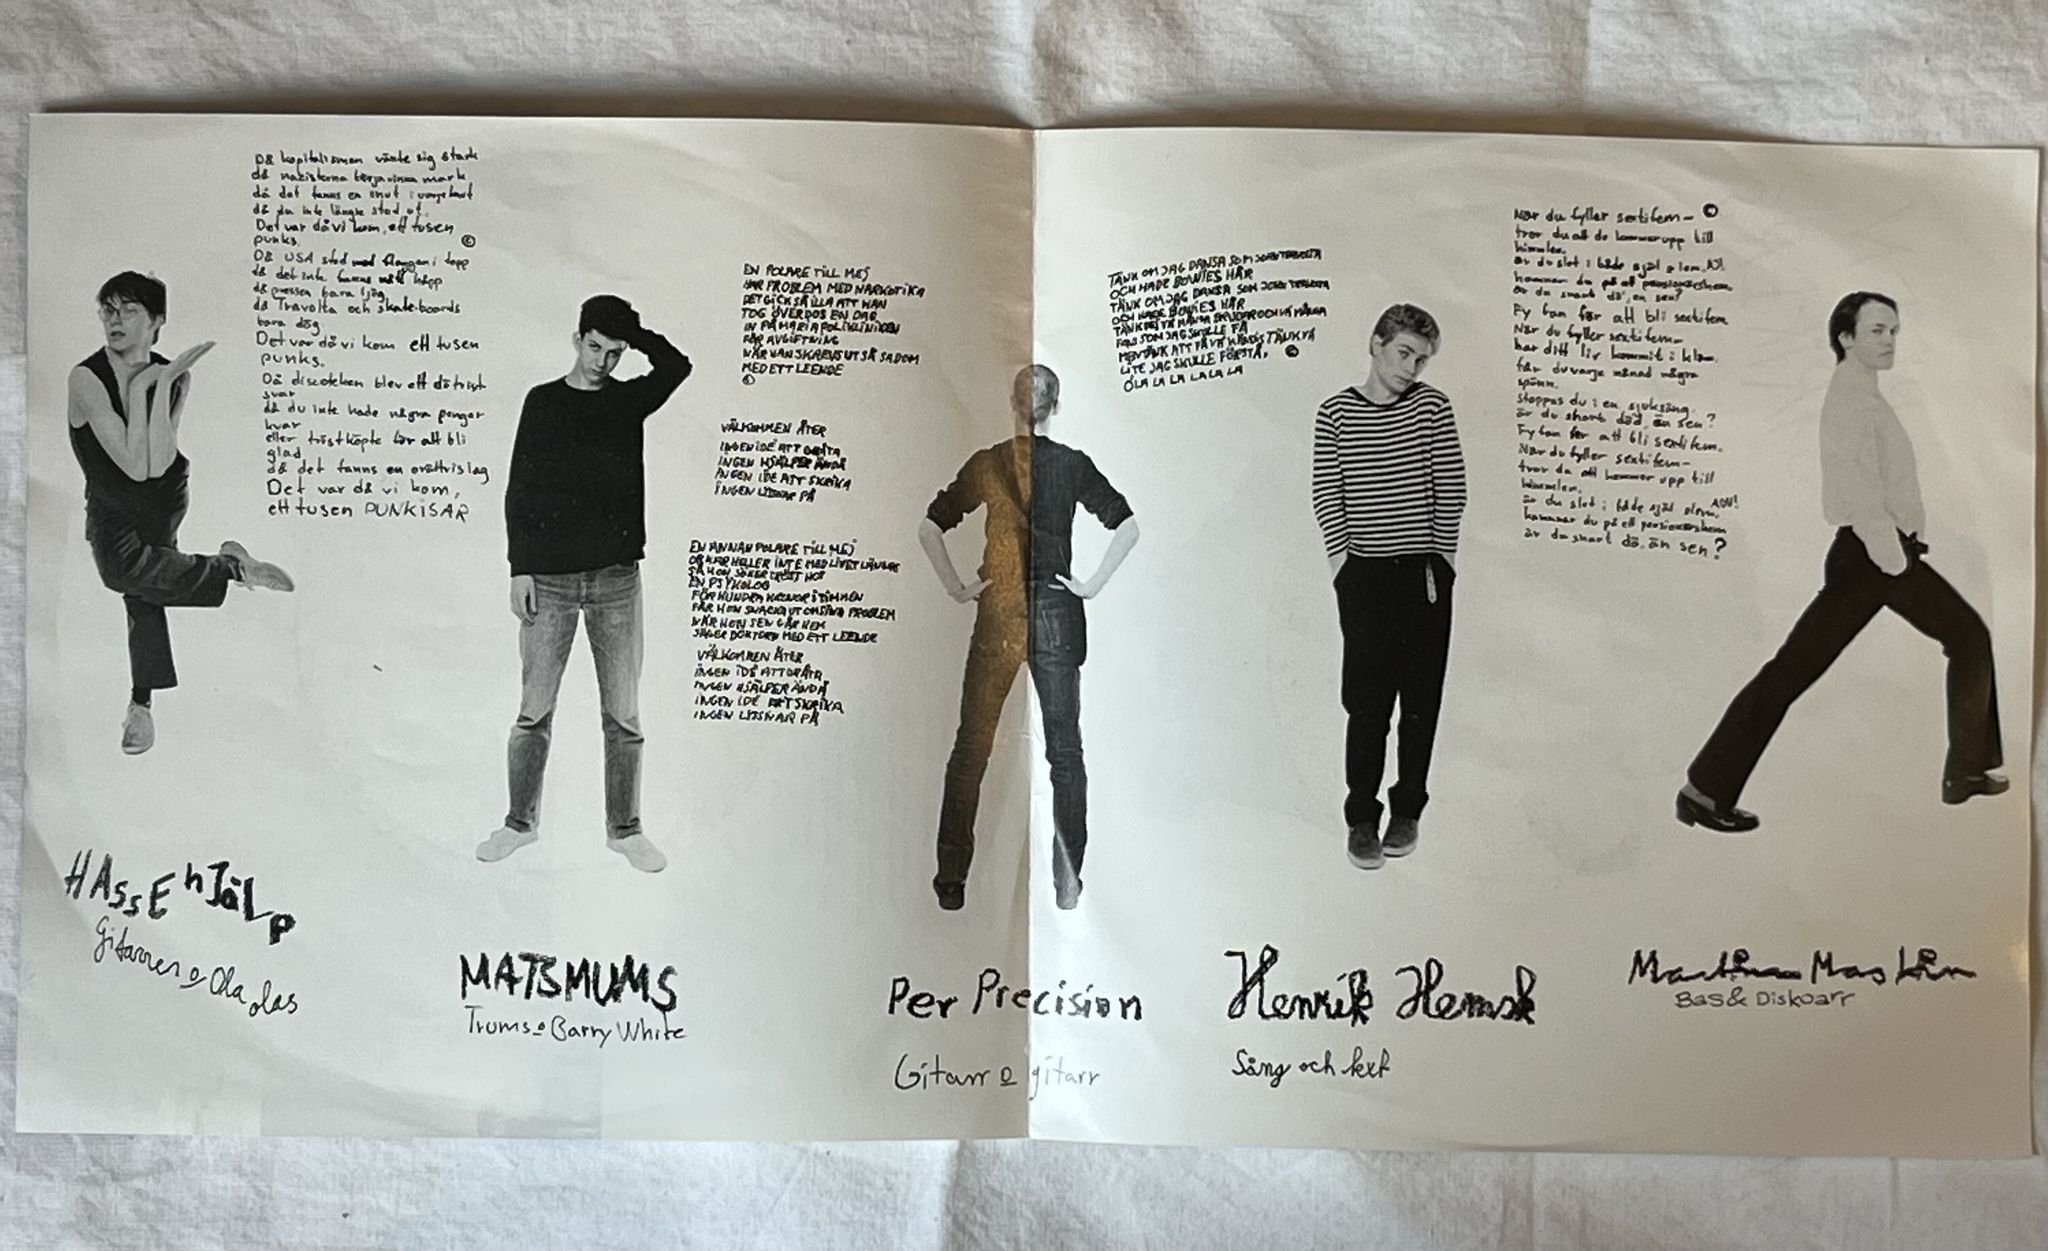 Då kapitalismen växte sig stark
då nazisterna börja vinna mark
då det fanns en snut i varje
då du inte längre stod ut.
Det var då vi kom, ett tusen
punks. ©
Då USA stod med flaggan i topp
då det inte fanns nått hopp
då pressen bara ljög
då Travolta och skate-boards
bara dög
Det var då vi kom ett tusen
punks.
Då discoteken blev ett då trist
svar
då du inte hade några pengar
kvar
eller tröstköpte för att bli
glad
då det fanns en orättvis lag
Det var då vi kom,
ett tusen PUNKISAR
EN POLARE TILL MEJ
HAR PROBLEM MED NARKOTIKA
DET GICK SÅ ILLA ATT HAN
TOG ÖVERDOS EN DAG
IN PÅ MARIAPOLIKLINIKEN
FÖR AVGIFTNING
NÄR HAN SKREVS UT SÅ SA DOM
MED ETT LEENDE
©
VÄLKOMMEN ÅTER
INGEN IDÉ ATT GRÅTA
INGEN HJÄLPER ÄNDÅ
INGEN IDÉ ATT SKRIKA
INGEN LYSSNAR PÅ
EN ANNAN POLARE TILL MEJ
ORKAR HELLER INTE MED LIVET LÄNGRE
SÅ HON SÖKER TRÖST HOS
EN PSYKOLOG
FÖR HUNDRA KRONOR I TIMMEN
FÅR HON SNACKA UT OM SINA PROBLEM
NÄR HON SEN GÅR HEM
SÄGER DOKTORN MED ETT LEENDE
VÄLKOMMEN ÅTER
INGEN IDÉ ATT GRÅTA
INGEN HJÄLPER ÄNDÅ
INGEN IDÉ ATT SKRIKA
INGEN LYSSNAR PÅ
TÄNK OM JAG DANSA SOM JOHN TRAVOLTA
OCH HADE BOWIES HÅR
TÄNK OM JAG DANSA SOM JOHN TRAVOLTA
OCH HADE BOWIES HÅR
TÄNK PÅ HUR MÅNGA BRUDAR OCH HUR MÅNGA
FANS SOM JAG SKULLE FÅ
MEN TÄNK ATT FÅ TÄNKA
LITE JAG SKULLE FÖRSTÅ, ©
O LA LA LA LA LA LA
När du fyller sextifem— ©
tror du att du kommer upp till
himmlen.
är du slut i både själ o lem, AJ!
hamnar du på ett pensionärshem
är du snart död, än sen?
Fy fan för att bli sextifem
När du fyller sextifem—
har ditt liv kommit i kläm.
får du varje månad några
spänn.
stoppas du i en sjuksäng.
är du snart död, än sen?
Fy fan för att bli sextifem.
När du fyller sextifem—
tror du att kommer upp till
himmlen.
är du slut i både själ o lem, AOU!
hamnar du på ett pensionärshem
är du snart dö, än sen?
HASSE hJäLp
Gitarrer o Ola olas
MATS MUMS
Trums o Barry White
Per Precision
Gitarr o gitarr
Henrik Hemsk
Sång och text
Martin Maskin
BAS & DISKOARR